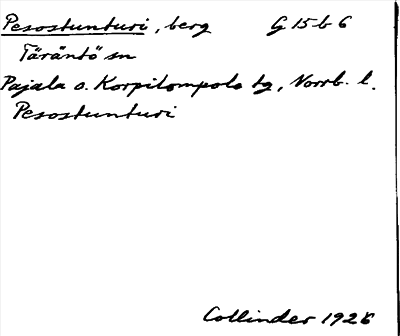 Pesostunturi, berg G 15 b 6
Täräntö sn
Pajala o. Korpilompolo tg, Norrb. l.
Pesostunturi
Collinder 1928